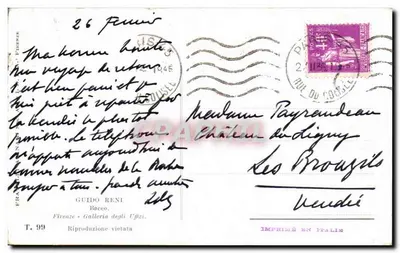 26 Février
Ma bonne
mon voyage de retour
s'est bien passé et je
suis prêt à repartir pour
la Vendée le plus tôt
possible. Le téléphone
m'apporte aujourd'hui de
bonnes nouvelles de la Roche
Bonjour à tous.
GUIDO RENI
Bacco.
Firenze - Galleria degli Uffizi.
T. 99
Riproduzione vietata
PARIS
RUE DU
Madame Payraudeau
Château du Ligny
Les Brouzils
Vendée
IMPRIMÉ EN ITALIE